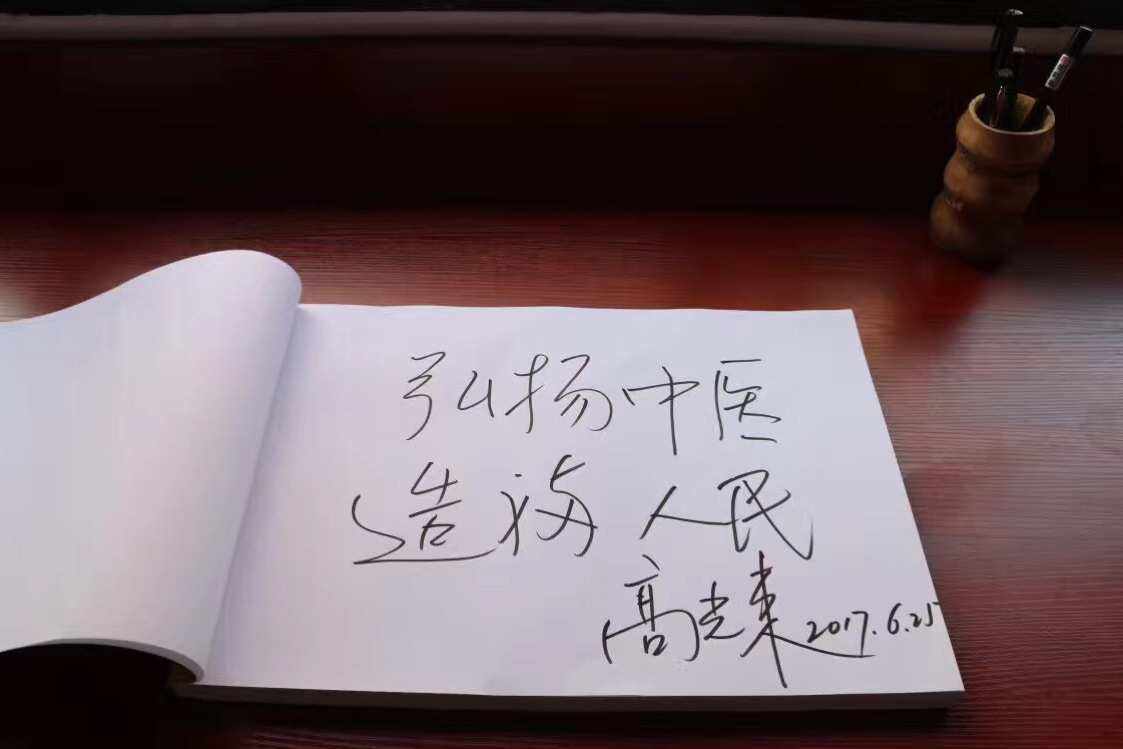 弘扬中医
造福人民
高光来 2017.6.25